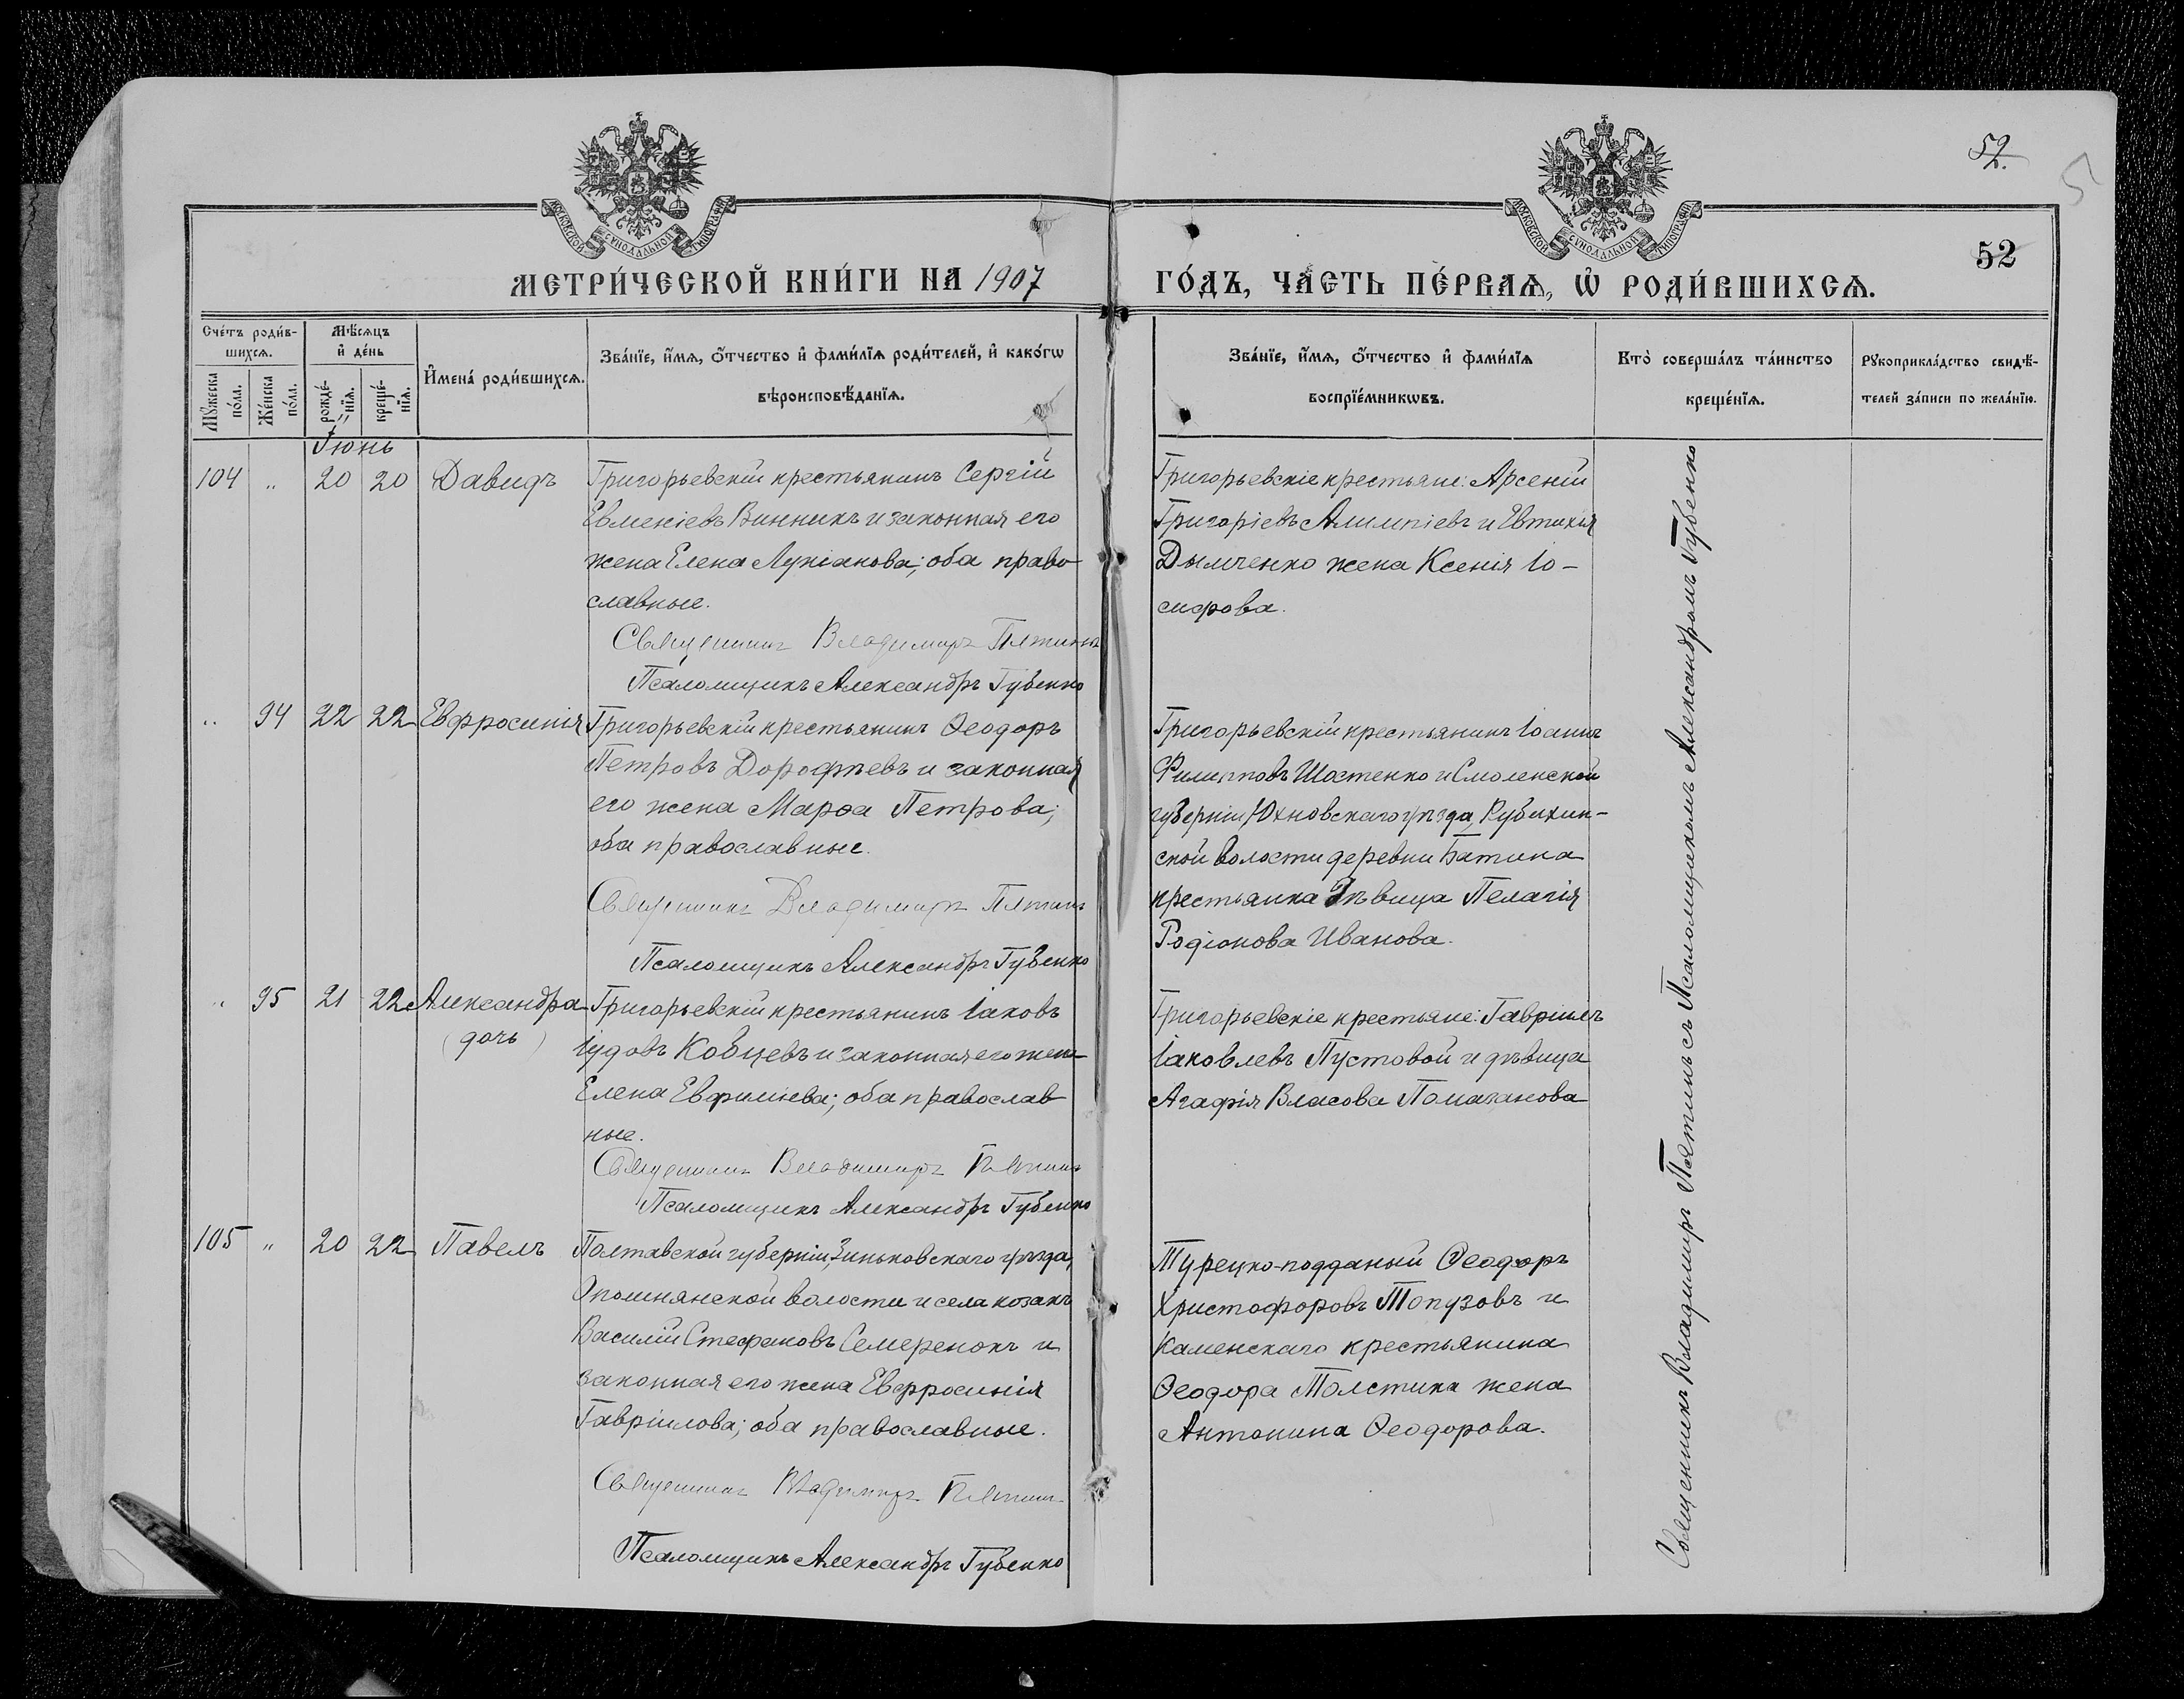 52.
5
МОСКОВСКОЙ СѴНОДАЛЬНОЙ ТИПОГРАФІИ
МОСКОВСКОЙ СѴНОДАЛЬНОЙ ТИПОГРАФІИ
52
МЕТРИ́ЧЕСКОЙ КНИ́ГИ НА 1907 ГО́ДЪ, ЧА́СТЬ ПЕ́РВАѦ, Ѡ҆ РОДИ́ВШИХСѦ.
Сче́тъ роди́в-
шихсѧ.
Мꙋ́жеска по́ла.
Же́нска по́ла.
Мѣ́сѧцъ
и҆ де́нь
рожде́-
нїѧ.
креще́-
нїѧ.
И҆мена̀ роди́вшихсѧ.
Зва́нїе, и҆́мѧ, ѻ҆́тчество и҆ фами́лїѧ роди́телей, и҆ како́гѡ
вѣроисповѣ́данїѧ.
Зва́нїе, и҆́мѧ, ѻ҆́тчество и҆ фами́лїѧ
воспрїе́мникѡвъ.
Кто̀ соверша́лъ та́инство
креще́нїѧ.
Рꙋкоприкла́дство свидѣ́-
телей за́писи по жела́нїю.
Іюнь
104 „ 20 20 Давидъ
Григорьевскій крестьянинъ Сергій
Евменіевъ Винникъ и законная его
жена Елена Лукіанова; оба право-
славные.
Священникъ Владимиръ Пятинъ
Псаломщикъ Александръ Губенко
Григорьевскіе крестьяне: Арсеній
Григоріевъ Алимпіевъ и Евтихія
Дымченко жена Ксенія Іо-
сифова.
„ 94 22 22 Евфросинія
Григорьевскій крестьянинъ Ѳеодоръ
Петровъ Дорофѣевъ и законная
его жена Марѳа Петрова;
оба православные.
Священникъ Владимиръ Пятинъ
Псаломщикъ Александръ Губенко
Григорьевскій крестьянинъ Іоаннъ
Филипповъ Шостенко и Смоленской
губерніи, Юхновскаго уѣзда, Рубихин-
ской волости деревни Батина
крестьянка дѣвица Пелагія
Родіонова Иванова.
„ 95 21 22 Александра
(дочь)
Григорьевскій крестьянинъ Іаковъ
Іудовъ Кобцевъ и законная его жена
Елена Евфиміева; оба православ-
ные.
Священникъ Владимиръ Пятинъ
Псаломщикъ Александръ Губенко
Григорьевскіе крестьяне: Гавріилъ
Іаковлевъ Пустовой и дѣвица
Агафія Власова Помазанова
105 „ 20 22 Павелъ
Полтавской губерніи, Зиньковскаго уѣзда,
Опошнянской волости и села козакъ
Василій Стефановъ Семеренокъ и
законная его жена Евфросинія
Гавріилова; оба православные.
Священникъ Владимиръ Пятинъ
Псаломщикъ Александръ Губенко
Турецко-подданый Ѳеодоръ
Христофоровъ Топузовъ и
Каменскаго крестьянина
Ѳеодора Толстика жена
Антонина Ѳеодорова.
Священникъ Владимиръ Пятинъ съ Псаломщикомъ Александромъ Губенко